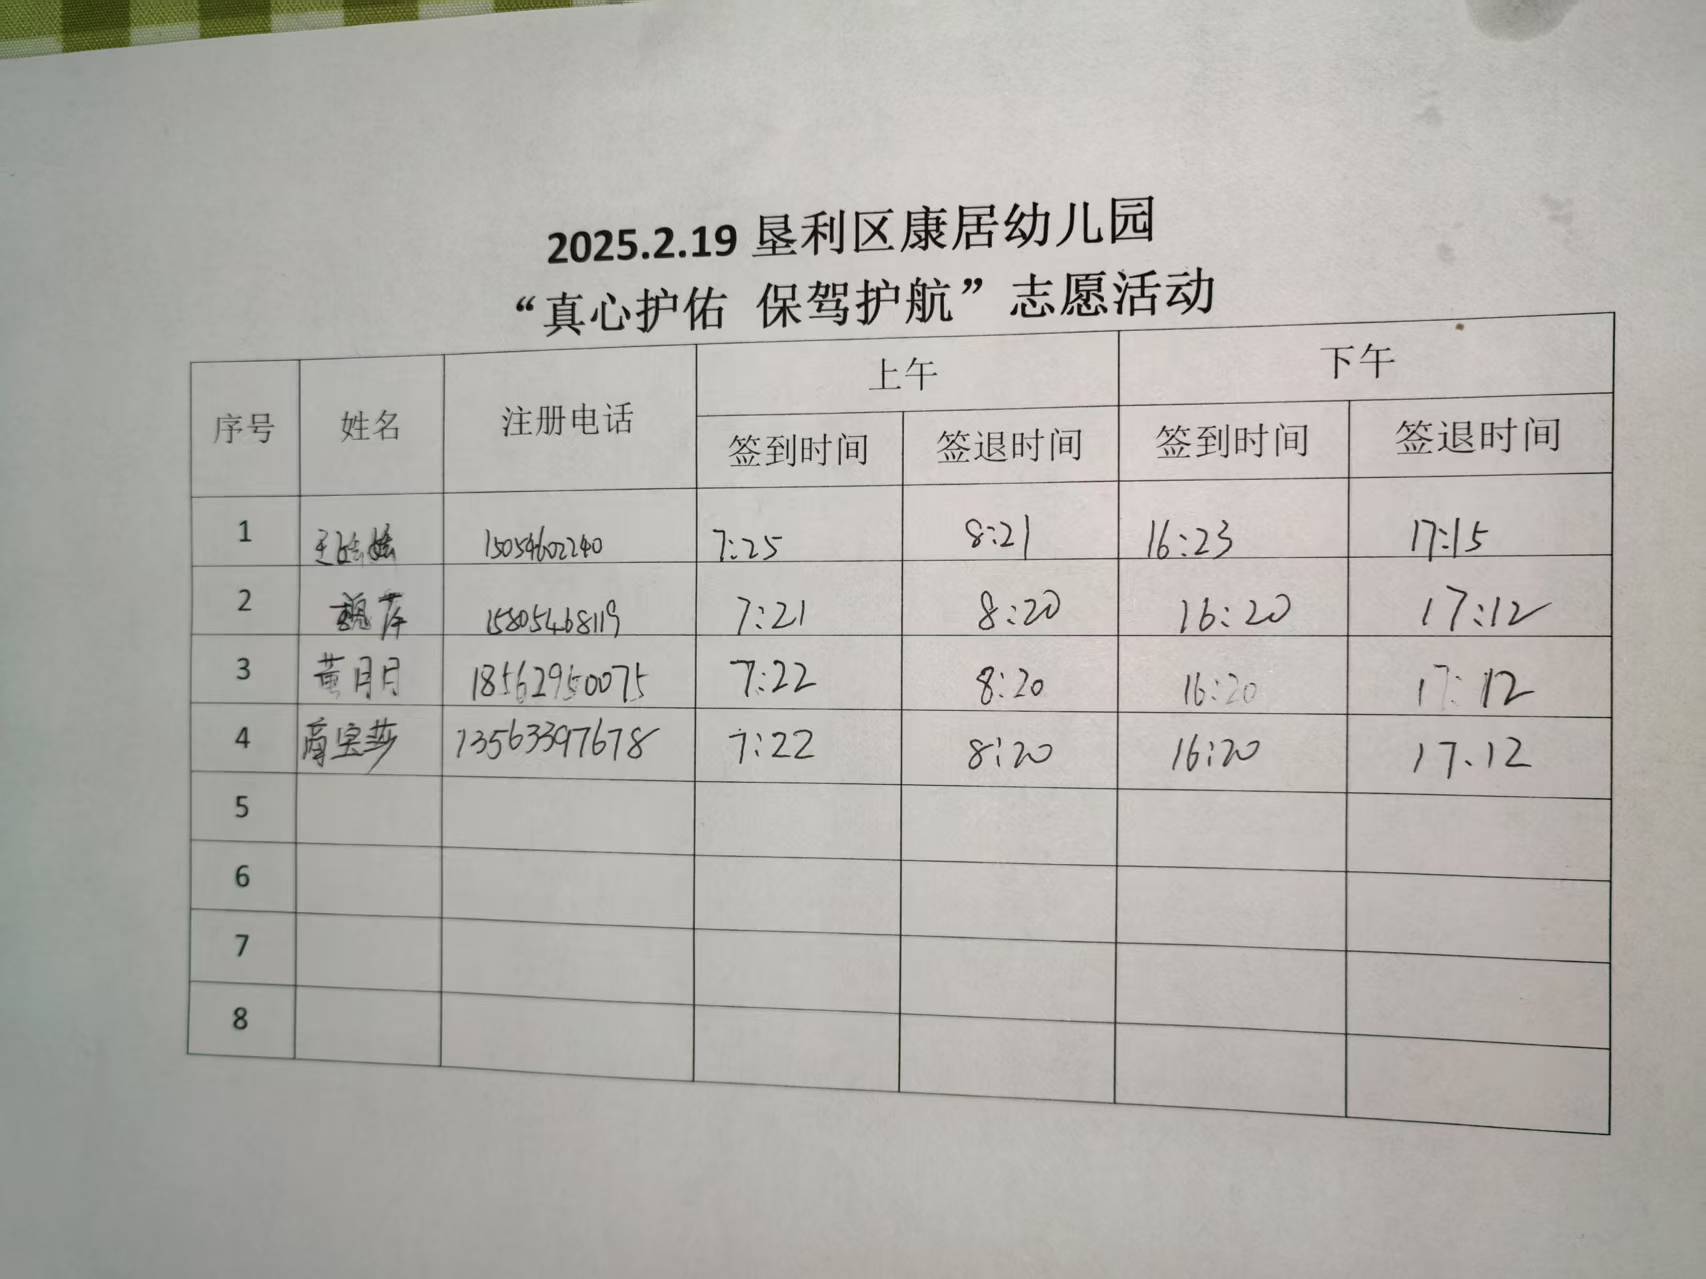 2025.2.19 垦利区康居幼儿园
“真心护佑 保驾护航”志愿活动
序号 姓名 注册电话 上午 下午
签到时间 签退时间 签到时间 签退时间
1 15054602240 7:25 8:21 16:23 17:15
2 魏萍 15805468119 7:21 8:20 16:20 17:12
3 黄月月 18562950075 7:22 8:20 16:20 17:12
4 宝莎 13563397678 7:22 8:20 16:20 17.12
5
6
7
8